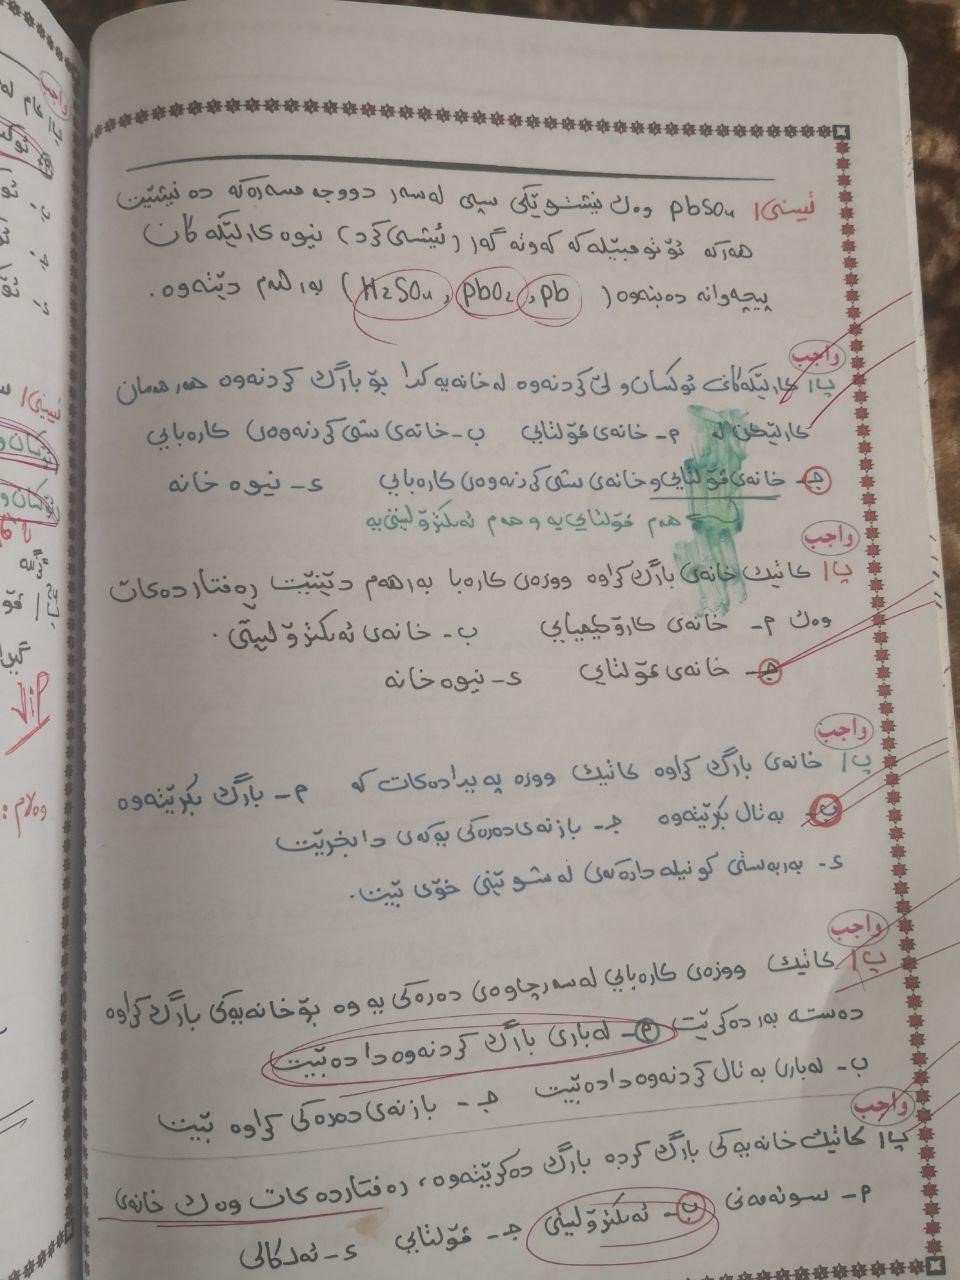 تێبینی/ pbSO4 وەك نیشتویێکی سپی لەسەر دووجەمسەرەکە دەنیشێت
هەرکە ئۆتۆمبێلەکە کەوتە گەڕ (ئیشی کرد) نیوە کارلێکەکان
پێچەوانە دەبنەوە (H2SO4, pbO2, pb) بەرهەم دێتەوە.
واجب
پ/ کارلێکەکانی ئۆکسان و لێکردنەوە لە خانەیەکدا بۆ بارگکردنەوە هەرهەمان
کارلێکن لە م- خانەی ڤۆلتایی ب- خانەی شیکردنەوەی کارەبایی
جـ- خانەی ڤۆلتایی و خانەی شیکردنەوەی کارەبایی د- نیوە خانە
هەم ڤۆلتایە و هەم ئەلکترۆلیتیە
واجب
پ/ کاتێك خانەی بارگکراوە ووزەی کارەبا بەرهەم دێنێت ڕەفتاردەکات
وەك م- خانەی کارۆکیمیایی ب- خانەی ئەلکترۆلیتی.
جـ- خانەی ڤۆلتایی د- نیوە خانە
واجب
پ/ خانەی بارگکراوە کاتێك ووزە پەیدادەکات کە م- بارگ بکرێتەوە
ب- بەتاڵ بکرێتەوە جـ- بازنەی دەرەکی یەکەی دابخرێت
د- بەربەستی کونیلەدارەکەی لە شوێنی خۆی بێت.
واجب
پ/ کاتێك ووزەی کارەبایی لەسەرچاوەی دەرەکی یەوە بۆ خانەیەکی بارگکراوە
دەستەبەردەکرێت م- لەباری بارگکردنەوەدا دەبێت
ب- لەباری بەتاڵکردنەوەدا دەبێت جـ- بازنەی دەرەکی کراوە بێت
واجب
پ/ کاتێك خانەیەکی بارگکردە بارگ دەکرێتەوە، ڕەفتاردەکات وەك خانەی
م- سوتەمەنی ب- ئەلکترۆلیتی جـ- ڤۆلتایی د- ئەلکالی
واجب
VIP
وەڵام: